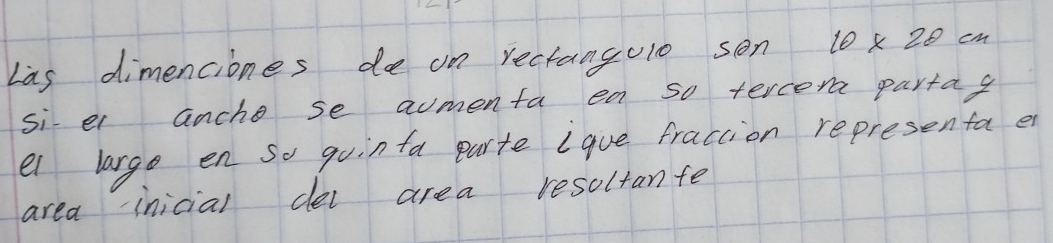 Las dimenciones de un rectangulo son 10 x 20 cm
si el ancho se aumenta en su tercera parta y
el largo en su quinta parte ¿que fraccion representa el
area inicial del area resultante